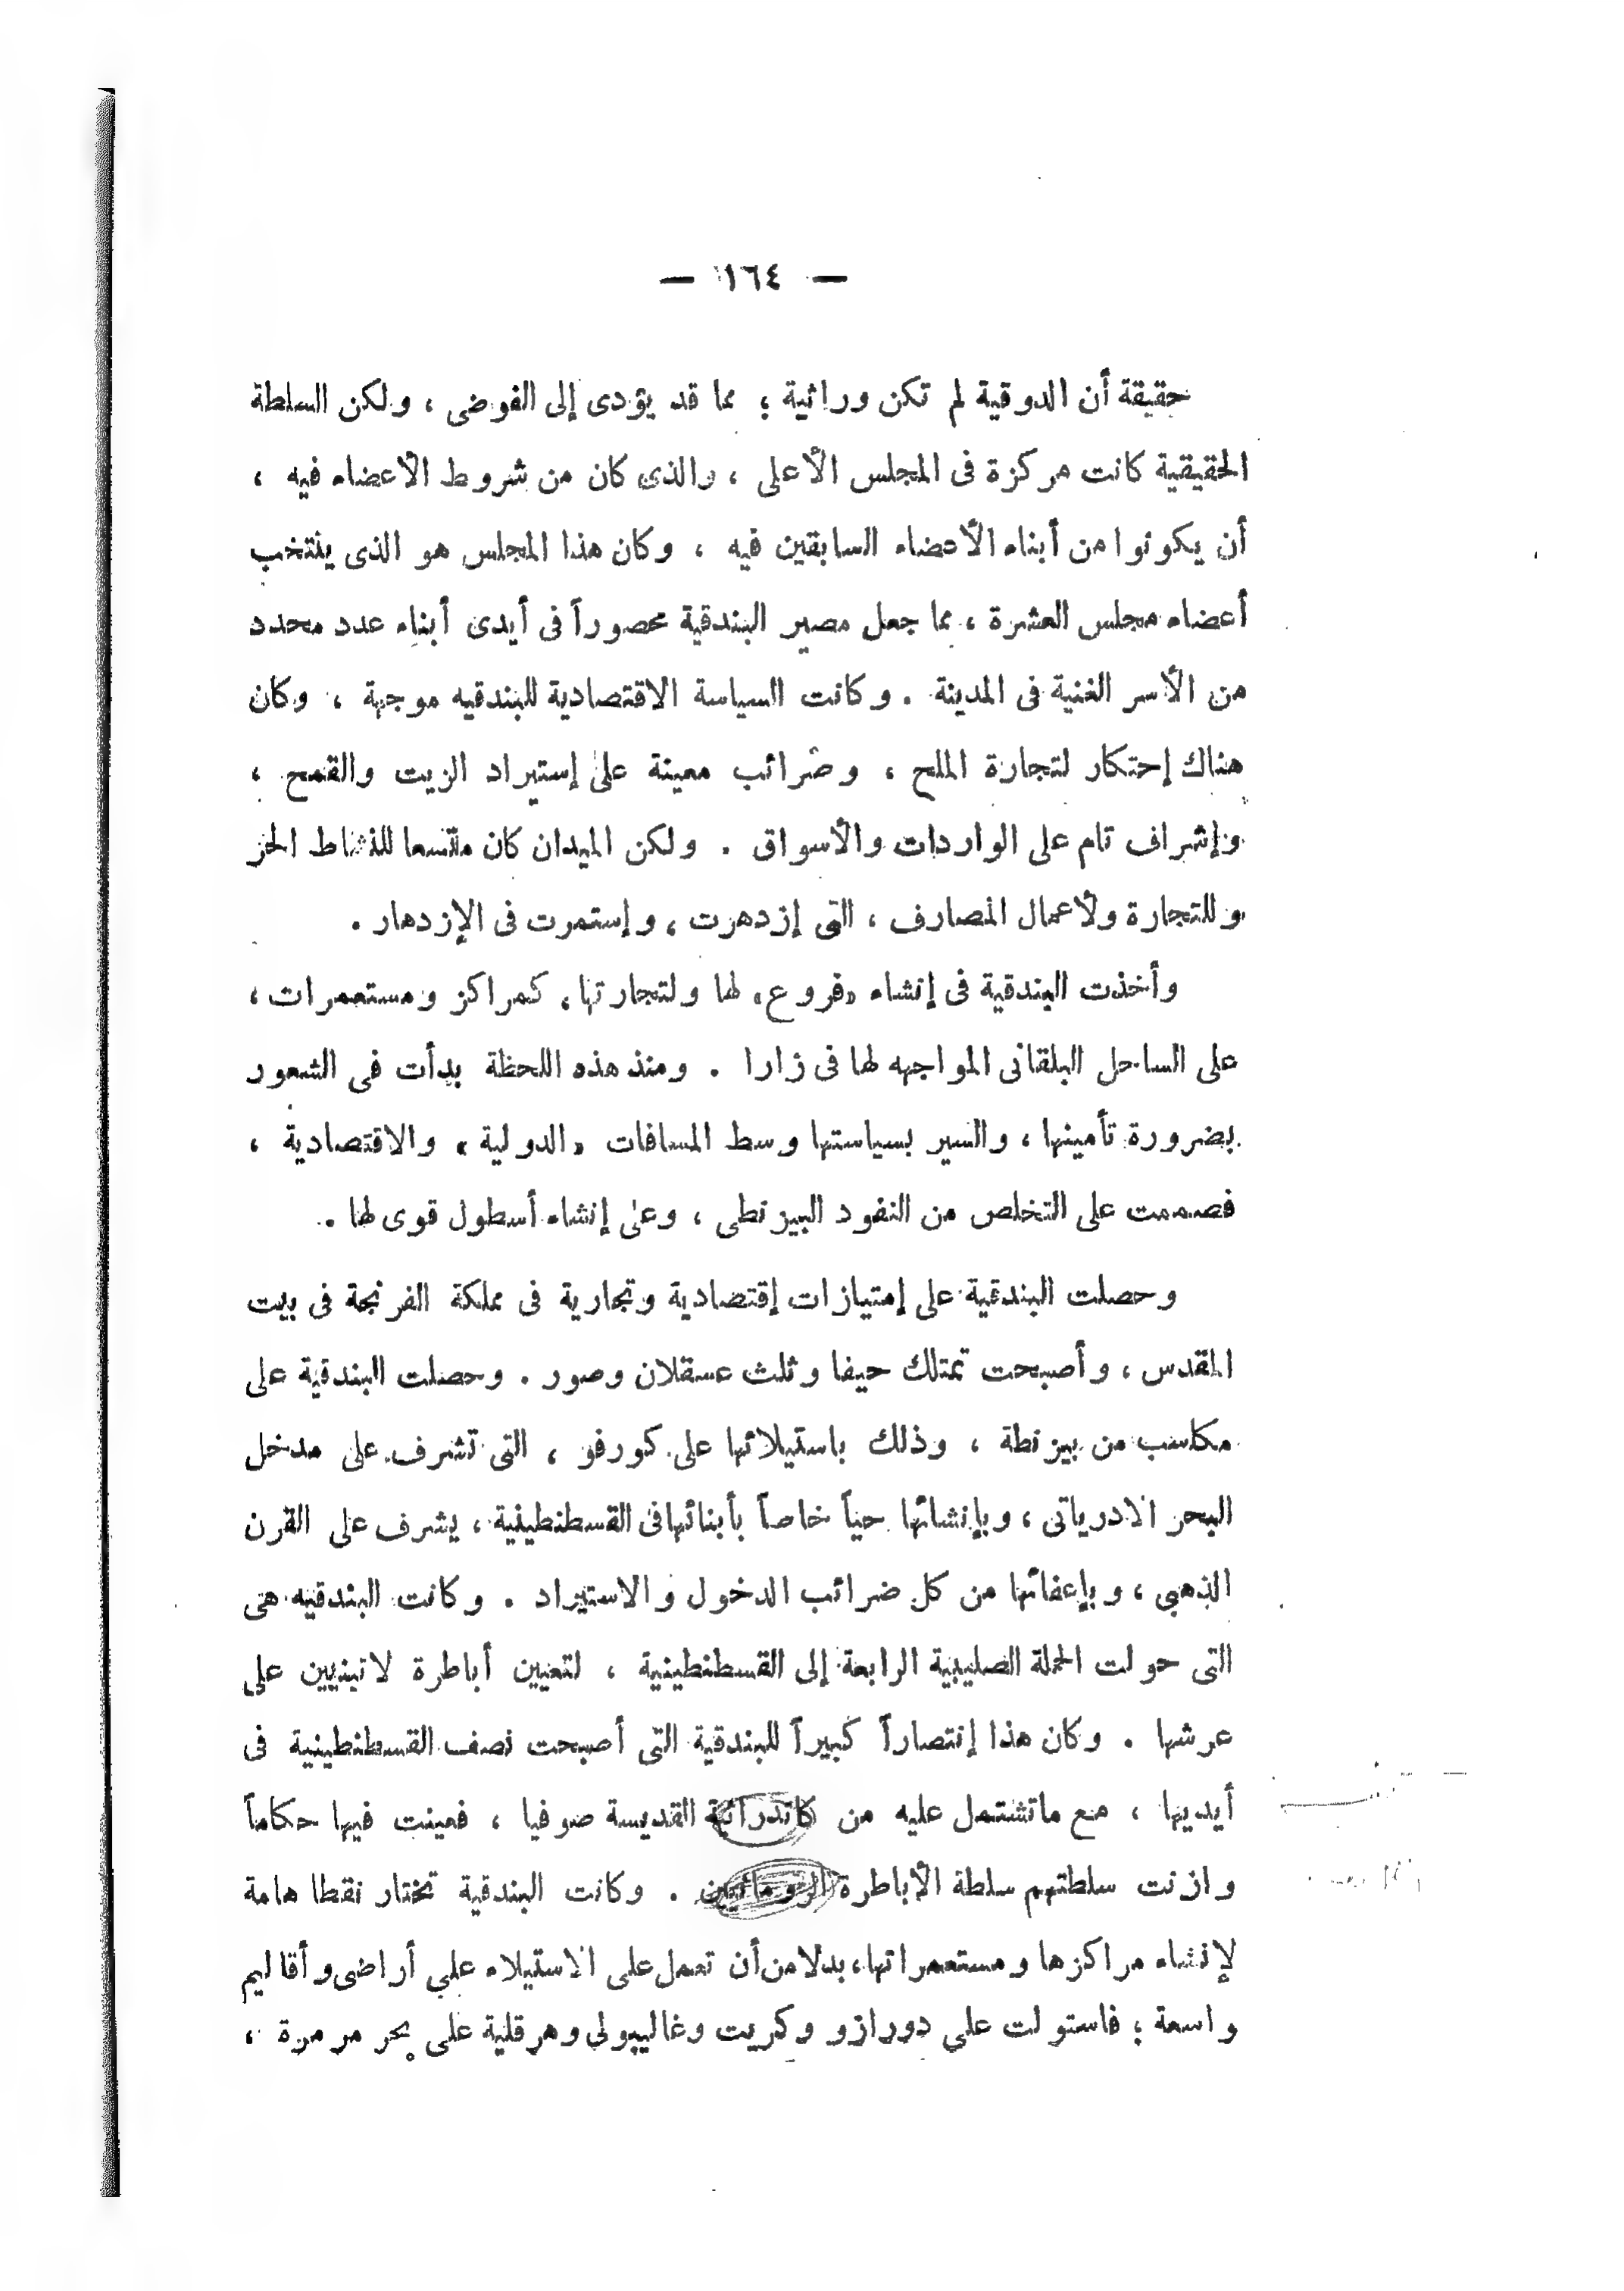 — ١٦٤ —
حقيقة أن الدوقية لم تكن وراثية ؛ مما قد يؤدى إلى الفوضى ، ولكن السلطة
الحقيقية كانت مركزة فى المجلس الأعلى ، والذى كان من شروط الأعضاء فيه ،
أن يكونوا من أبناء الأعضاء السابقين فيه ، وكان هذا المجلس هو الذى ينتخب
أعضاء مجلس العشرة ، مما جعل مصير البندقية محصوراً فى أيدى أبناء عدد محدد
من الأسر الغنية فى المدينة . وكانت السياسة الاقتصادية للبندقيه موجهة ، وكان
هناك إحتكار لتجارة الملح ، وضرائب معينة على إستيراد الزيت والقمح ،
وإشراف تام على الواردات والأسواق . ولكن الميدان كان متسعا للنشاط الحر
وللتجارة ولأعمال المصارف ، التى إزدهرت ، وإستمرت فى الإزدهار .
وأخذت البندقية فى إنشاء «فروع» لها ولتجارتها ، كمراكز ومستعمرات ،
على الساحل البلقانى المواجهه لها فى زارا . ومنذ هذه اللحظة بدأت فى الشعور
بضرورة تأمينها ، والسير بسياستها وسط المسافات « الدولية » والاقتصادية ،
فصممت على التخلص من النفود البيزنطى ، وعلى إنشاء أسطول قوى لها .
وحصلت البندقية على إمتيازات إقتصادية وتجارية فى مملكة الفرنجة فى بيت
المقدس ، وأصبحت تمتلك حيفا وثلث عسقلان وصور . وحصلت البندقية على
مكاسب من بيزنطة ، وذلك باستيلائها على كورفو ، التى تشرف على مدخل
البحر الادرياتى ، وبإنشائها حياً خاصاً بأبنائها فى القسطنطينية ، يشرف على القرن
الذهبى ، وبإعفائها من كل ضرائب الدخول والاستيراد . وكانت البندقيه هى
التى حولت الحملة الصليبية الرابعة إلى القسطنطينية ، لتعيين أباطرة لاتينيين على
عرشها . وكان هذا إنتصاراً كبيراً للبندقية التى أصبحت نصف القسطنطينية فى
أيديها ، مع ماتشتمل عليه من كاتدرائية القديسة صوفيا ، فعينت فيها حكاماً
وازنت سلطتهم سلطة الأباطرة الرومانيين . وكانت البندقية تختار نقطا هامة
لإنشاء مراكزها ومستعمراتها ، بدلا من أن تعمل على الاستيلاء على أراضى وأقاليم
واسعة ؛ فاستولت على دورازو وكريت وغاليبولى وهرقلية على بحر مرمرة ،